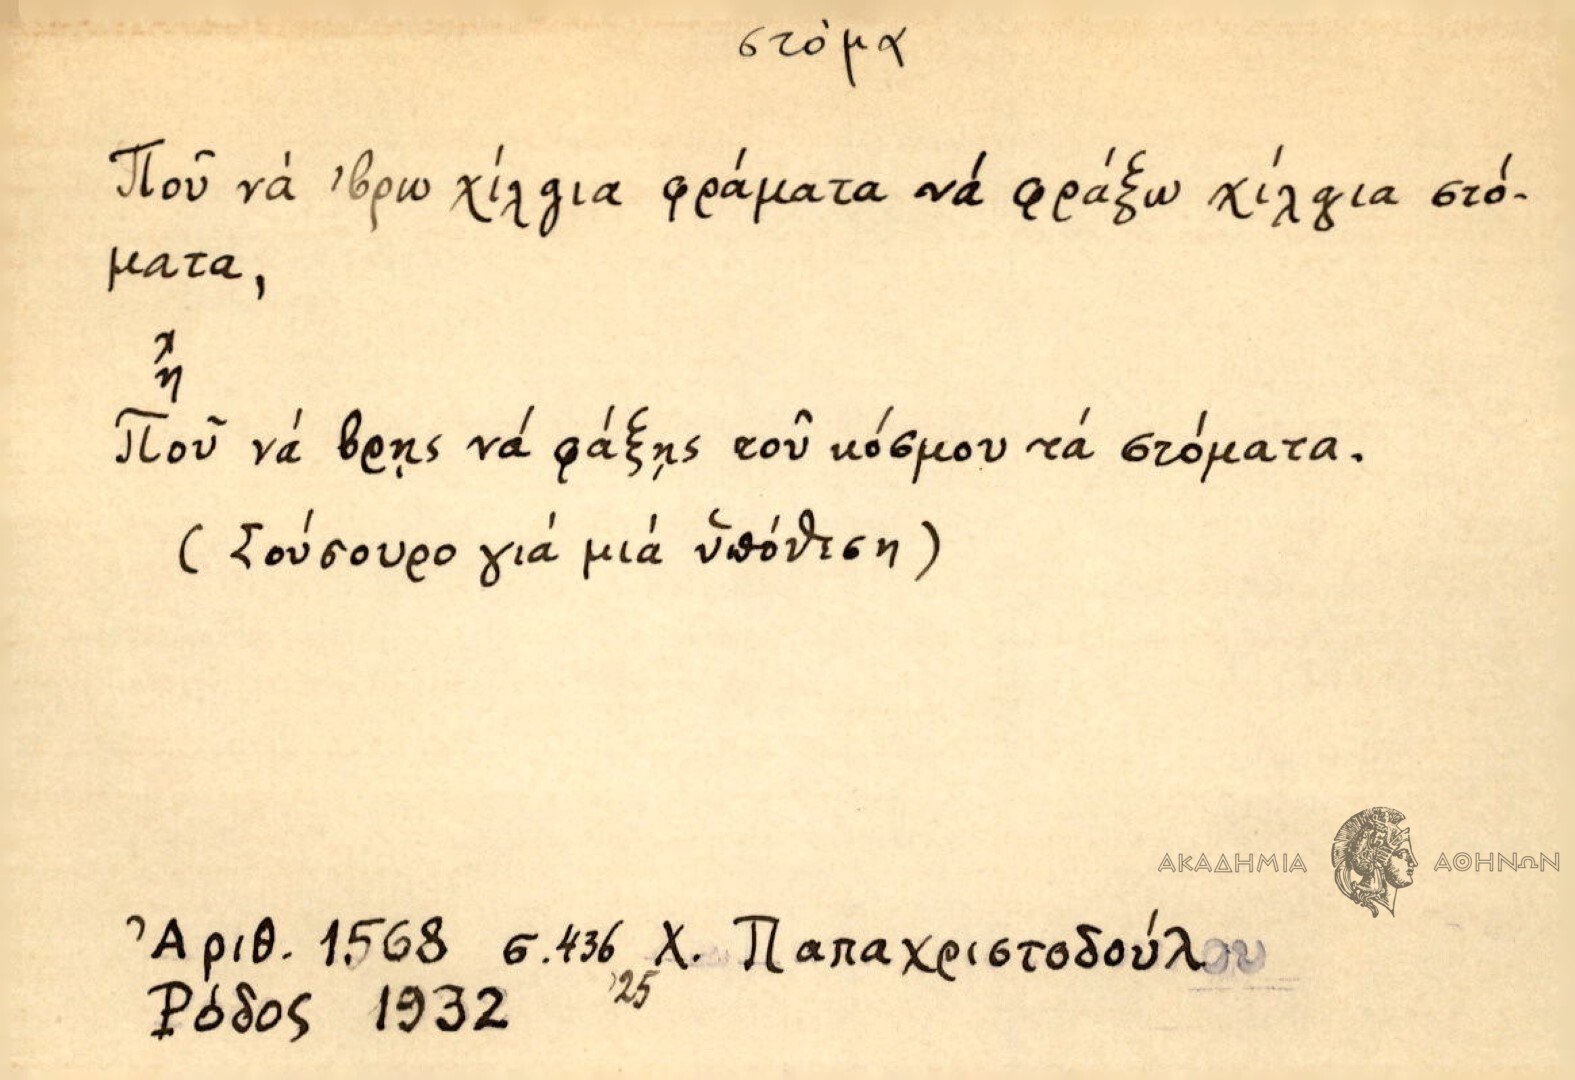 στόμα
Ποῦ νά 'βρω χίλγια φράματα νά φράξω χίλγια στό-
ματα,
ἤ
Ποῦ νά βρῃς νά φάξῃς τοῦ κόσμου τά στόματα.
(Σούσουρο γιά μιά ὑπόθεση)
ΑΚΑΔΗΜΙΑ ΑΘΗΝΩΝ
Ἀριθ. 1568 σ.436 Χ. Παπαχριστοδούλου
Ρόδος 1932 '25